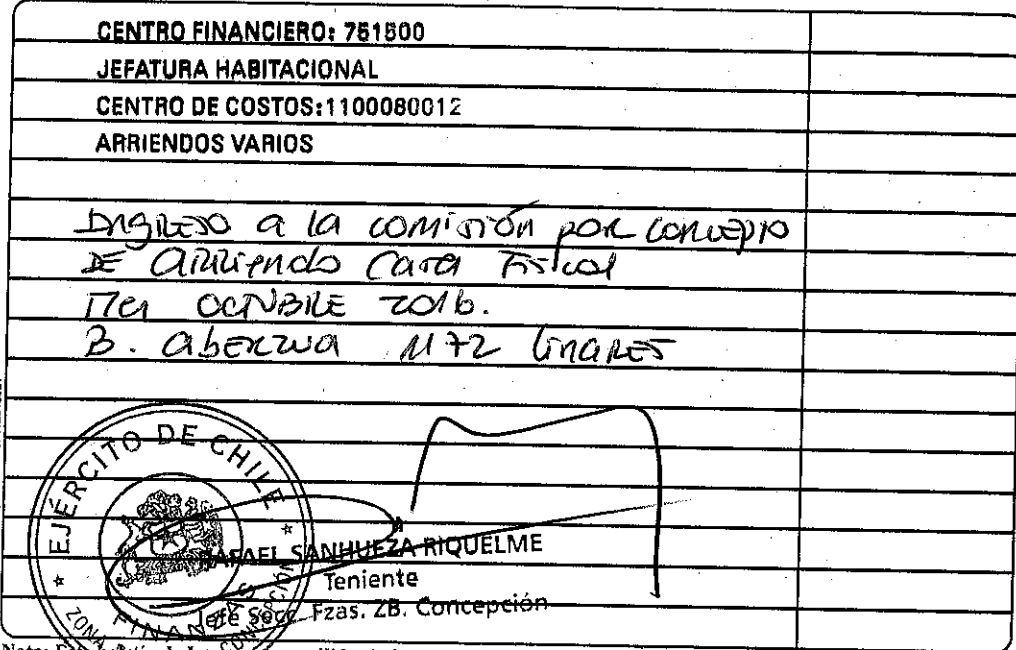 CENTRO FINANCIERO: 751500
JEFATURA HABITACIONAL
CENTRO DE COSTOS:1100080012
ARRIENDOS VARIOS
INGRESO a la comisión por concepto
DE arriendo Casa Fiscal
Mes OCTUBRE 2016.
B. aberzua 1172 linares
EJÉRCITO DE CHILE
RAFAEL SANHUEZA RIQUELME
Teniente
Jefe Secc Fzas. ZB. Concepción
ZONA FINANZAS CONCEPCIÓN